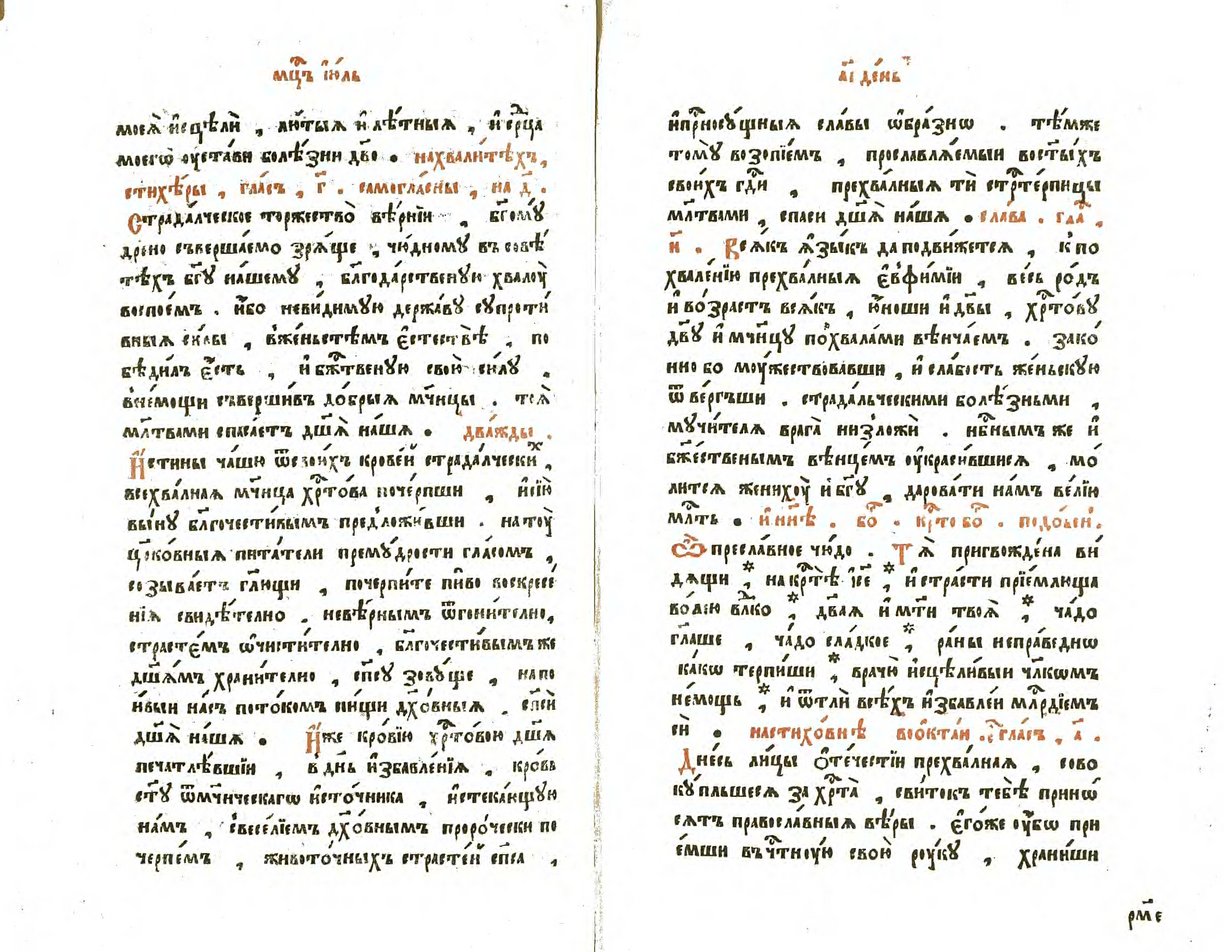 мц҃ъ і҆ю́ль
моеѧ̀ и҆сцѣлѝ , лю́тыѧ и҆ лѣ́тныѧ , и҆ срⷣца
моегѡ̀ ᲂу҆ста́ви болѣ́зни дв҃о . на хвали́техъ ,
стихѣ́ры , гла́съ , г҃ . самогла́сны , на д҃ .
Страда́лческое торжество̀ вѣ́рнїи , бг҃ому́
дрено съверша́емо зрѧ́ще , чю́дному въ совѣ́
тѣхъ бг҃у на́шему , благода́рственую хвалоу̀
воспое́мъ . и҆́бо неви́димую держа́ву сꙋпроти́
вныѧ си́лы , в же́ньстѣмъ є҆стествѣ̀ , по
бѣди́лъ є҆́сть , и҆ бж҃твеную свою̀ си́лу ,
в не́мощи съверши́въ до́брыѧ мч҃нцы . тоѧ̀
мл҃твами спаса́етъ дш҃ѧ̀ на́шѧ . два́жды .
И҆́стины ча́шю ѿ свои́хъ крове́й страда́лческихъ ,
всехва́лнаѧ мч҃нца хрⷭ҇то́ва поче́рпши , и҆ сїю̀
вы́ну бл҃гочести́вымъ предложи́вши . на тоу̀
цр҃ко́вныѧ пита́тели премꙋ́дрости гла́сомъ ,
созыва́етъ гл҃ющи , почерпи́те пи́во воскресе́
нїѧ свидѣ́телно . невѣ́рнымъ ѿгони́телно ,
страсте́мъ ѡ҆чисти́телно , бл҃гочести́вымъ же
дш҃а́мъ храни́телно , сп҃су зовꙋ́ще , напо
и́выи на́съ пото́комъ пи́щи дх҃о́вныѧ . сп҃сѝ
дш҃ѧ̀ на́шѧ . И҆́же кро́вїю хрⷭ҇то́вою дш҃ѧ
печатлѣ́вшїи , в дн҃ь и҆збавле́нїѧ , кро́вь
ст҃у ѿ мч҃ническагѡ и҆сто́чника , и҆стека́ющую
на́мъ , с весе́лїемъ дх҃о́внымъ проро́чески по
че́рпемъ , живото́чныхъ страсте́й сп҃са ,
а҃і де́нь
и҆ прⷭ҇носу́щныѧ сла́вы ѡ҆́бразнѡ . тѣ́мже
томꙋ̀ возопїе́мъ , прославлѧ́емыи во ст҃ы́хъ
свои́хъ гдⷭ҇и , прехва́лныѧ тѝ стрⷭ҇те́рпицы
мл҃твами , спасѝ дш҃ѧ̀ на́шѧ . сла́ва . гла́ ,
и҃ . Всѧ́къ ꙗ҆зы́къ да подви́жется , к̾ по
хвале́нїю прехва́лныѧ є҆ѵфи́мїи , ве́сь ро́дъ
и҆ во́зрастъ всѧ́къ , ю҆́ноши и҆ дв҃ы , хрⷭ҇то́вꙋ
дв҃ꙋ и҆ мч҃нцꙋ похвала́ми вѣнча́емъ . зако́
нно бо моу́жествовавши , и҆ сла́бость же́ньскую
ѿве́ргъши . страда́льческими болѣ́зньми ,
мꙋчи́телѧ врага̀ низложѝ . нбⷭ҇нымъ же и҆
бж҃ественымъ вѣнце́мъ ᲂу҆краси́вшися , мо́
лится женихоу̀ и҆ бг҃у , дарова́ти на́мъ ве́лїю
млⷭ҇ть . и҆ ны́нѣ . бо́ . крⷭ҇то бо́ . подо́бен .
Ѽ пресла́вное чю́до . Тѧ̀ пригвожде́на ви́
дѧщи * на крⷭ҇тѣ̀ і҆с҃е * и҆ стра́сти прїе́млюща
во́лею влⷣко * дв҃аѧ и҆ мт҃и твоѧ̀ * ча́до
гл҃аше , ча́до сла́дкое * ра́ны непра́веднѡ
ка́кѡ терпи́ши * врачю̀ и҆сцѣли́выи чл҃кѡмъ
не́мощь * и҆ ѿ тлѝ всѣ́хъ и҆зба́влеи млⷭ҇рдїемъ
си̑ . на стихо́внѣ в о҆кта́и . гла́съ , а҃ .
Дне́сь ли́цы ѻ҆те́честїи прехва́лнаѧ , сово
кꙋ́пльшеся за хрⷭ҇та̀ , сви́токъ тебѣ̀ принѡ́
сѧтъ правосла́вныѧ вѣ́ры . є҆го́же ᲂу҆́бѡ при
е́мши въ чⷭ҇тноую свою̀ роу́кꙋ , храни́ши
рм҃е